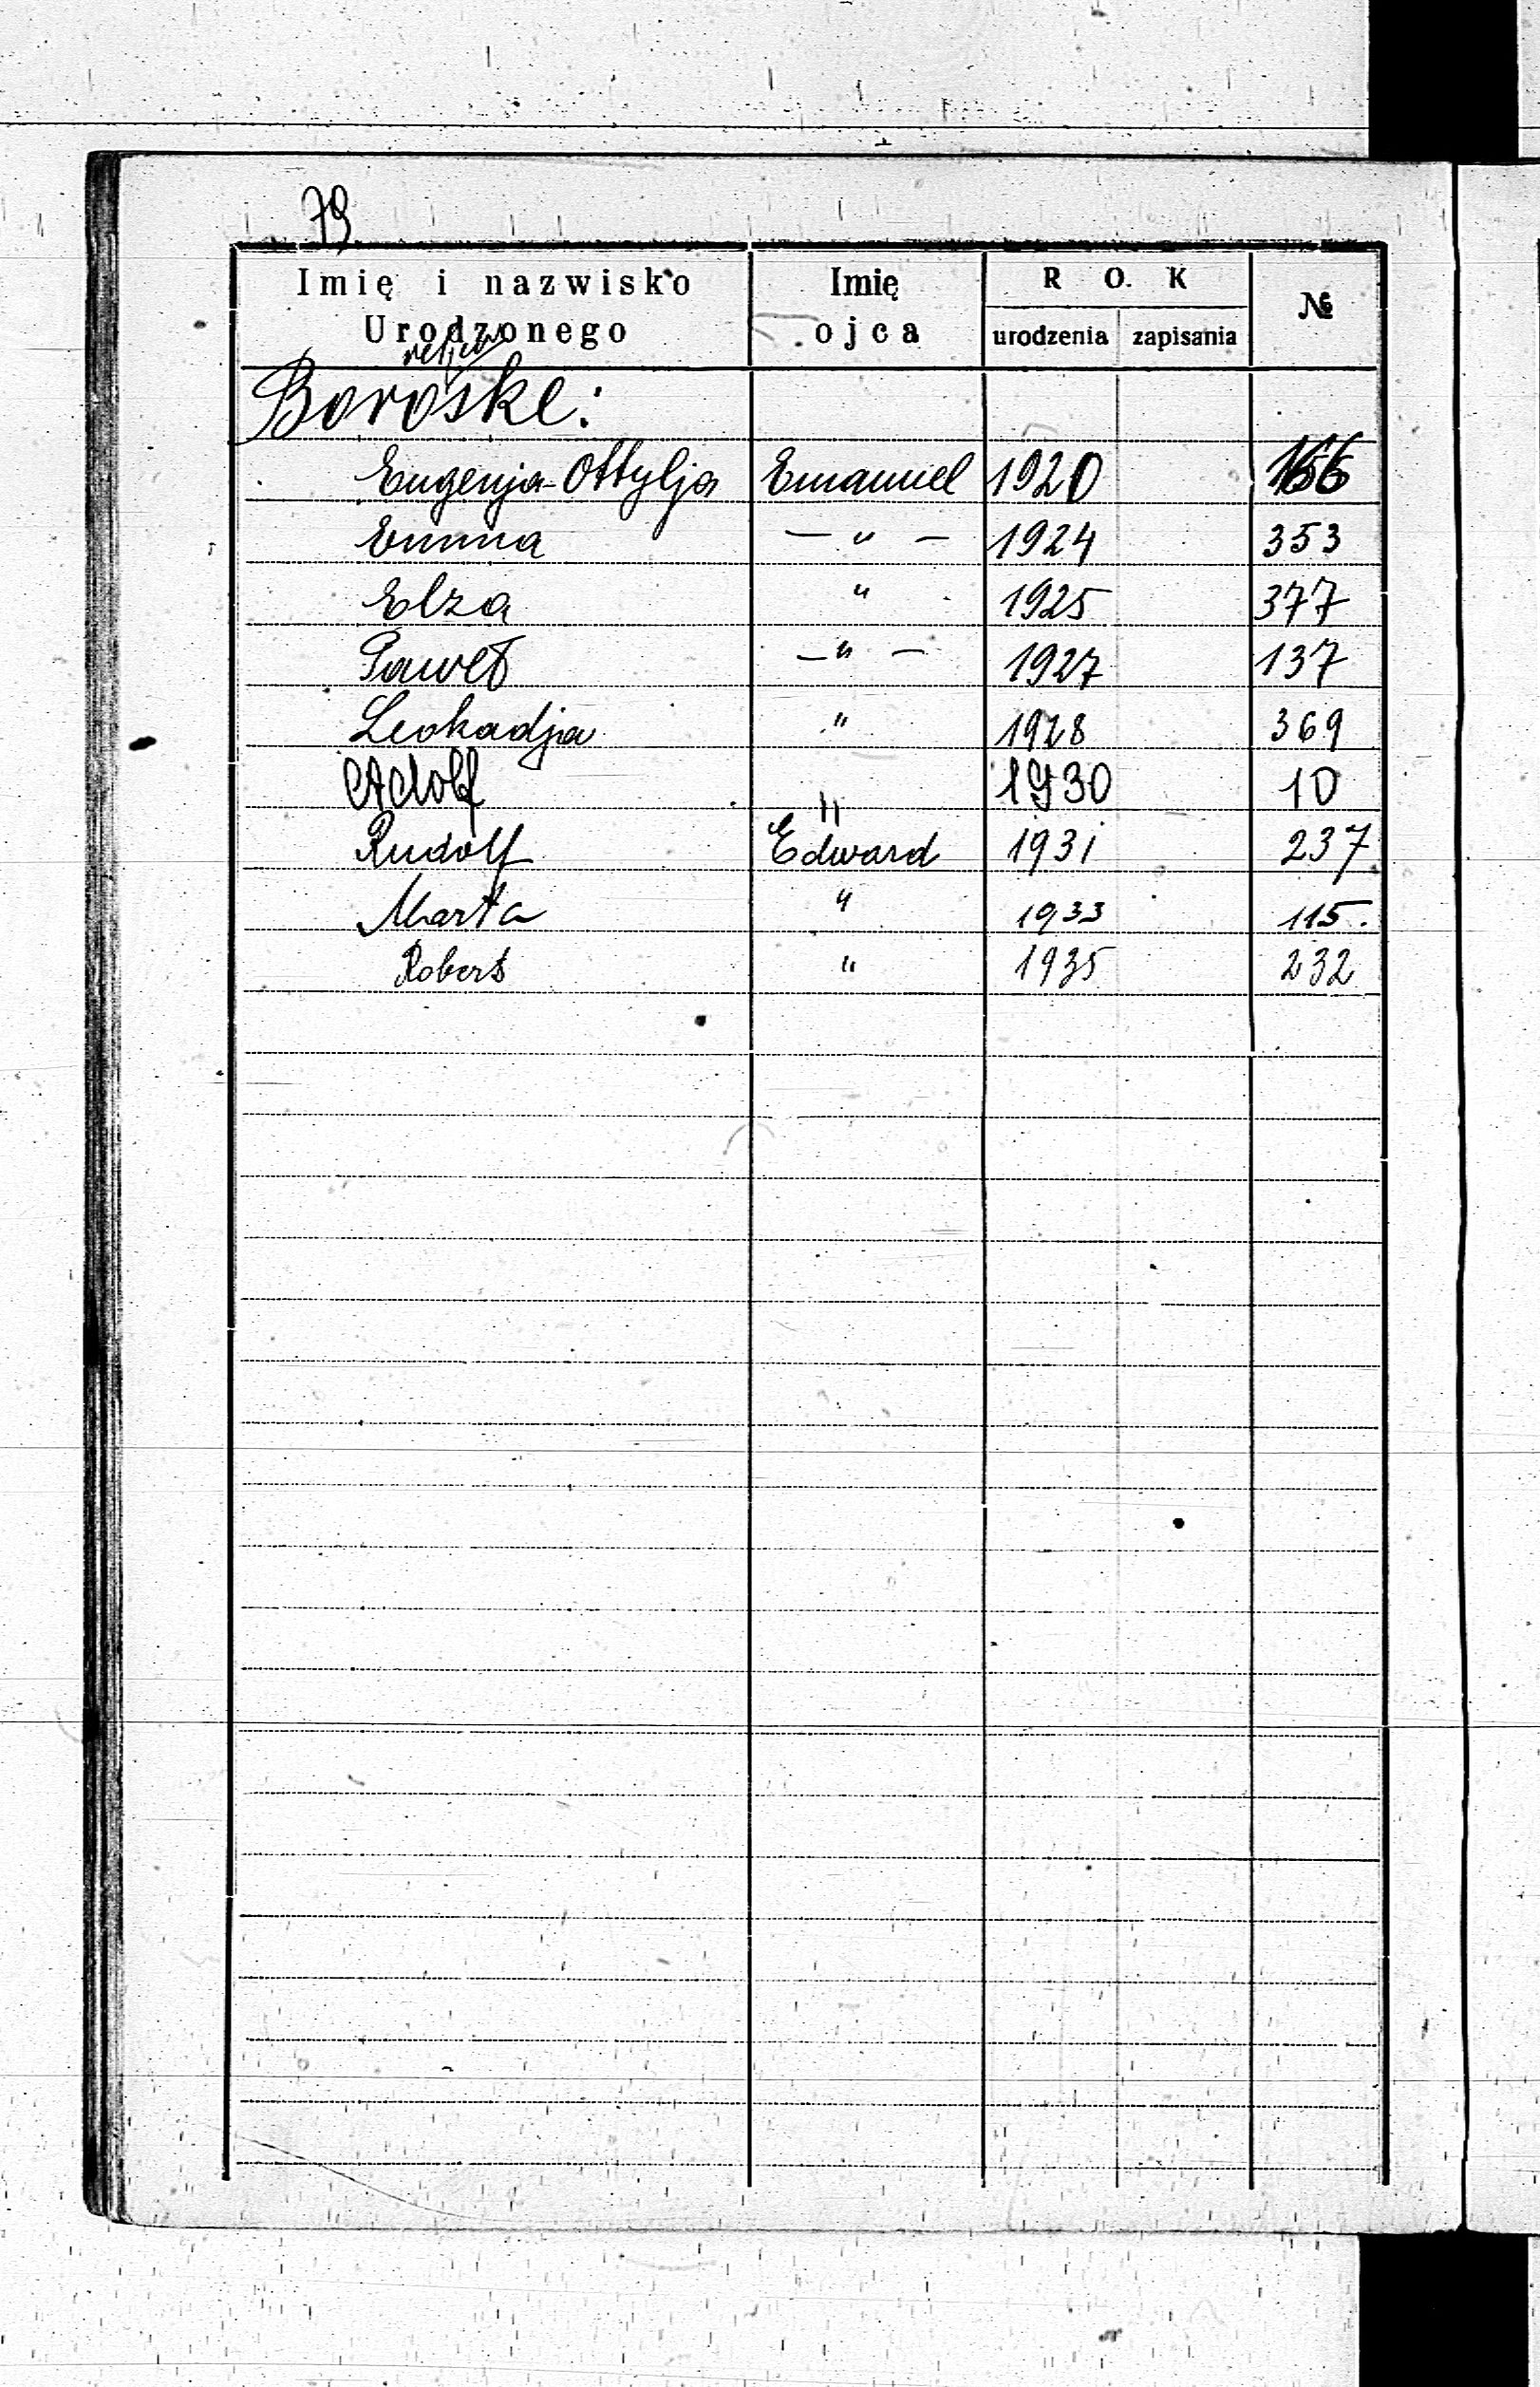 79
Imię i nazwisko Urodzonego Imię ojca R O K urodzenia zapisania №
Boroske:
Eugenja-Ottylja Emanuel 1920 166
Emma — " — 1924 353
Elza " 1925 377
Paweł — " — 1927 137
Leokadja " 1928 369
Adolf " 1930 10
Rudolf Edward 1931 237
Marta " 1933 115.
Robert " 1935 232